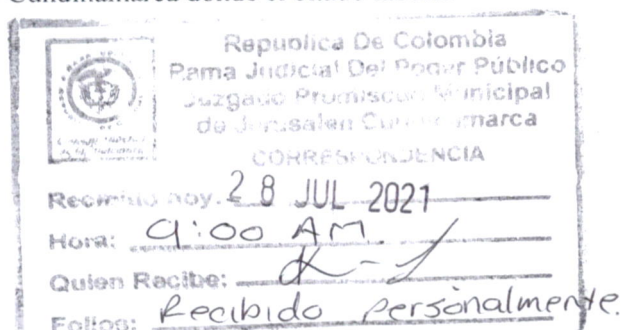 Republica De Colombia
Rama Judicial Del Poder Público
Juzgado Promiscuo Municipal
de Jerusalen Cundinamarca
CORRESPONDENCIA
Recibido hoy: 28 JUL 2021
Hora: 9:00 AM.
Quien Recibe:
Folios: Recibido personalmente.